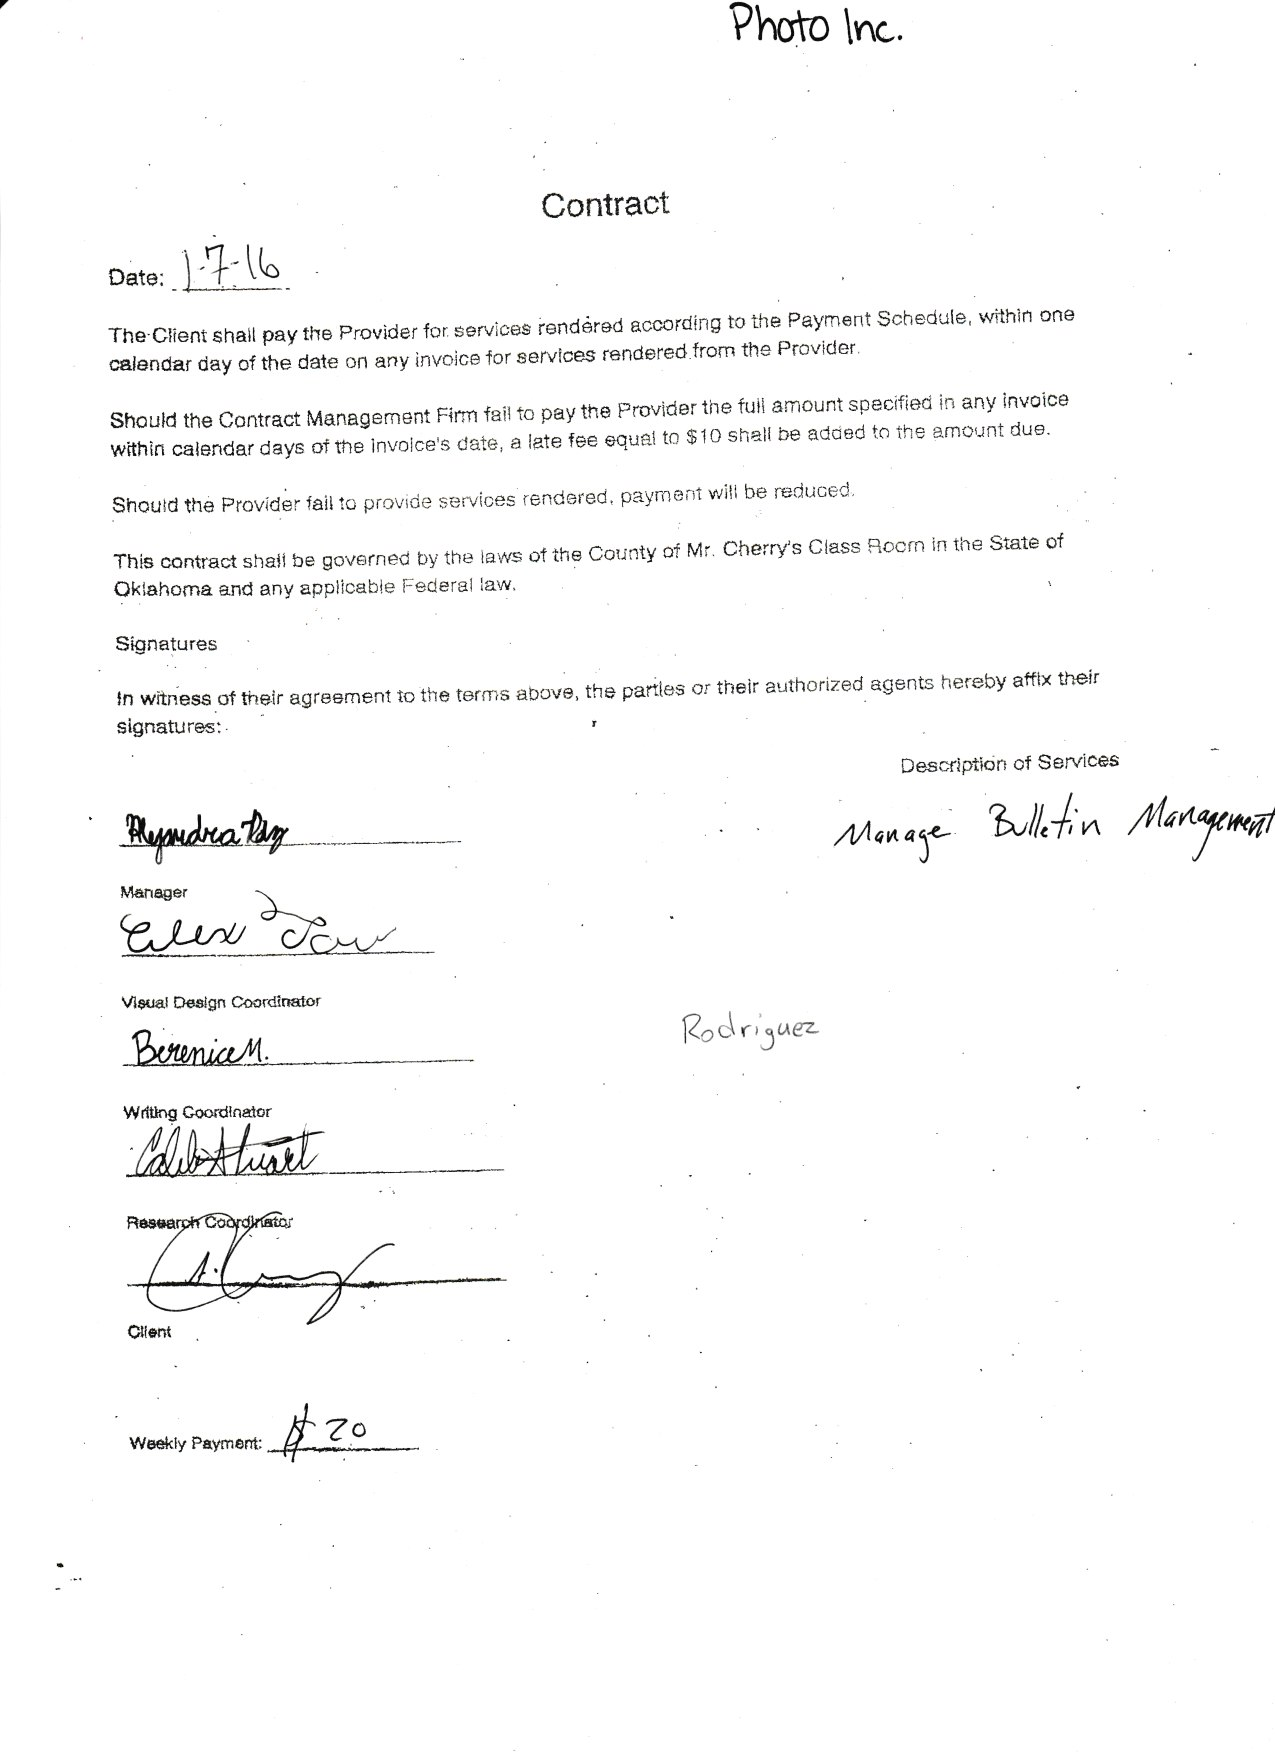 Photo Inc.
Contract
Date: 1-7-16
The Client shall pay the Provider for services rendered according to the Payment Schedule, within one
calendar day of the date on any invoice for services rendered from the Provider.
Should the Contract Management Firm fail to pay the Provider the full amount specified in any invoice
within calendar days of the invoice's date, a late fee equal to $10 shall be added to the amount due.
Should the Provider fail to provide services rendered, payment will be reduced.
This contract shall be governed by the laws of the County of Mr. Cherry's Class Room in the State of
Oklahoma and any applicable Federal law.
Signatures
In witness of their agreement to the terms above, the parties or their authorized agents hereby affix their
signatures:
Description of Services
Manage Bulletin Management
Alejandra
Manager
Alex
Visual Design Coordinator
Berenice M.
Rodriguez
Writing Coordinator
Caleb Stuart
Research Coordinator
Client
Weekly Payment: $ 20